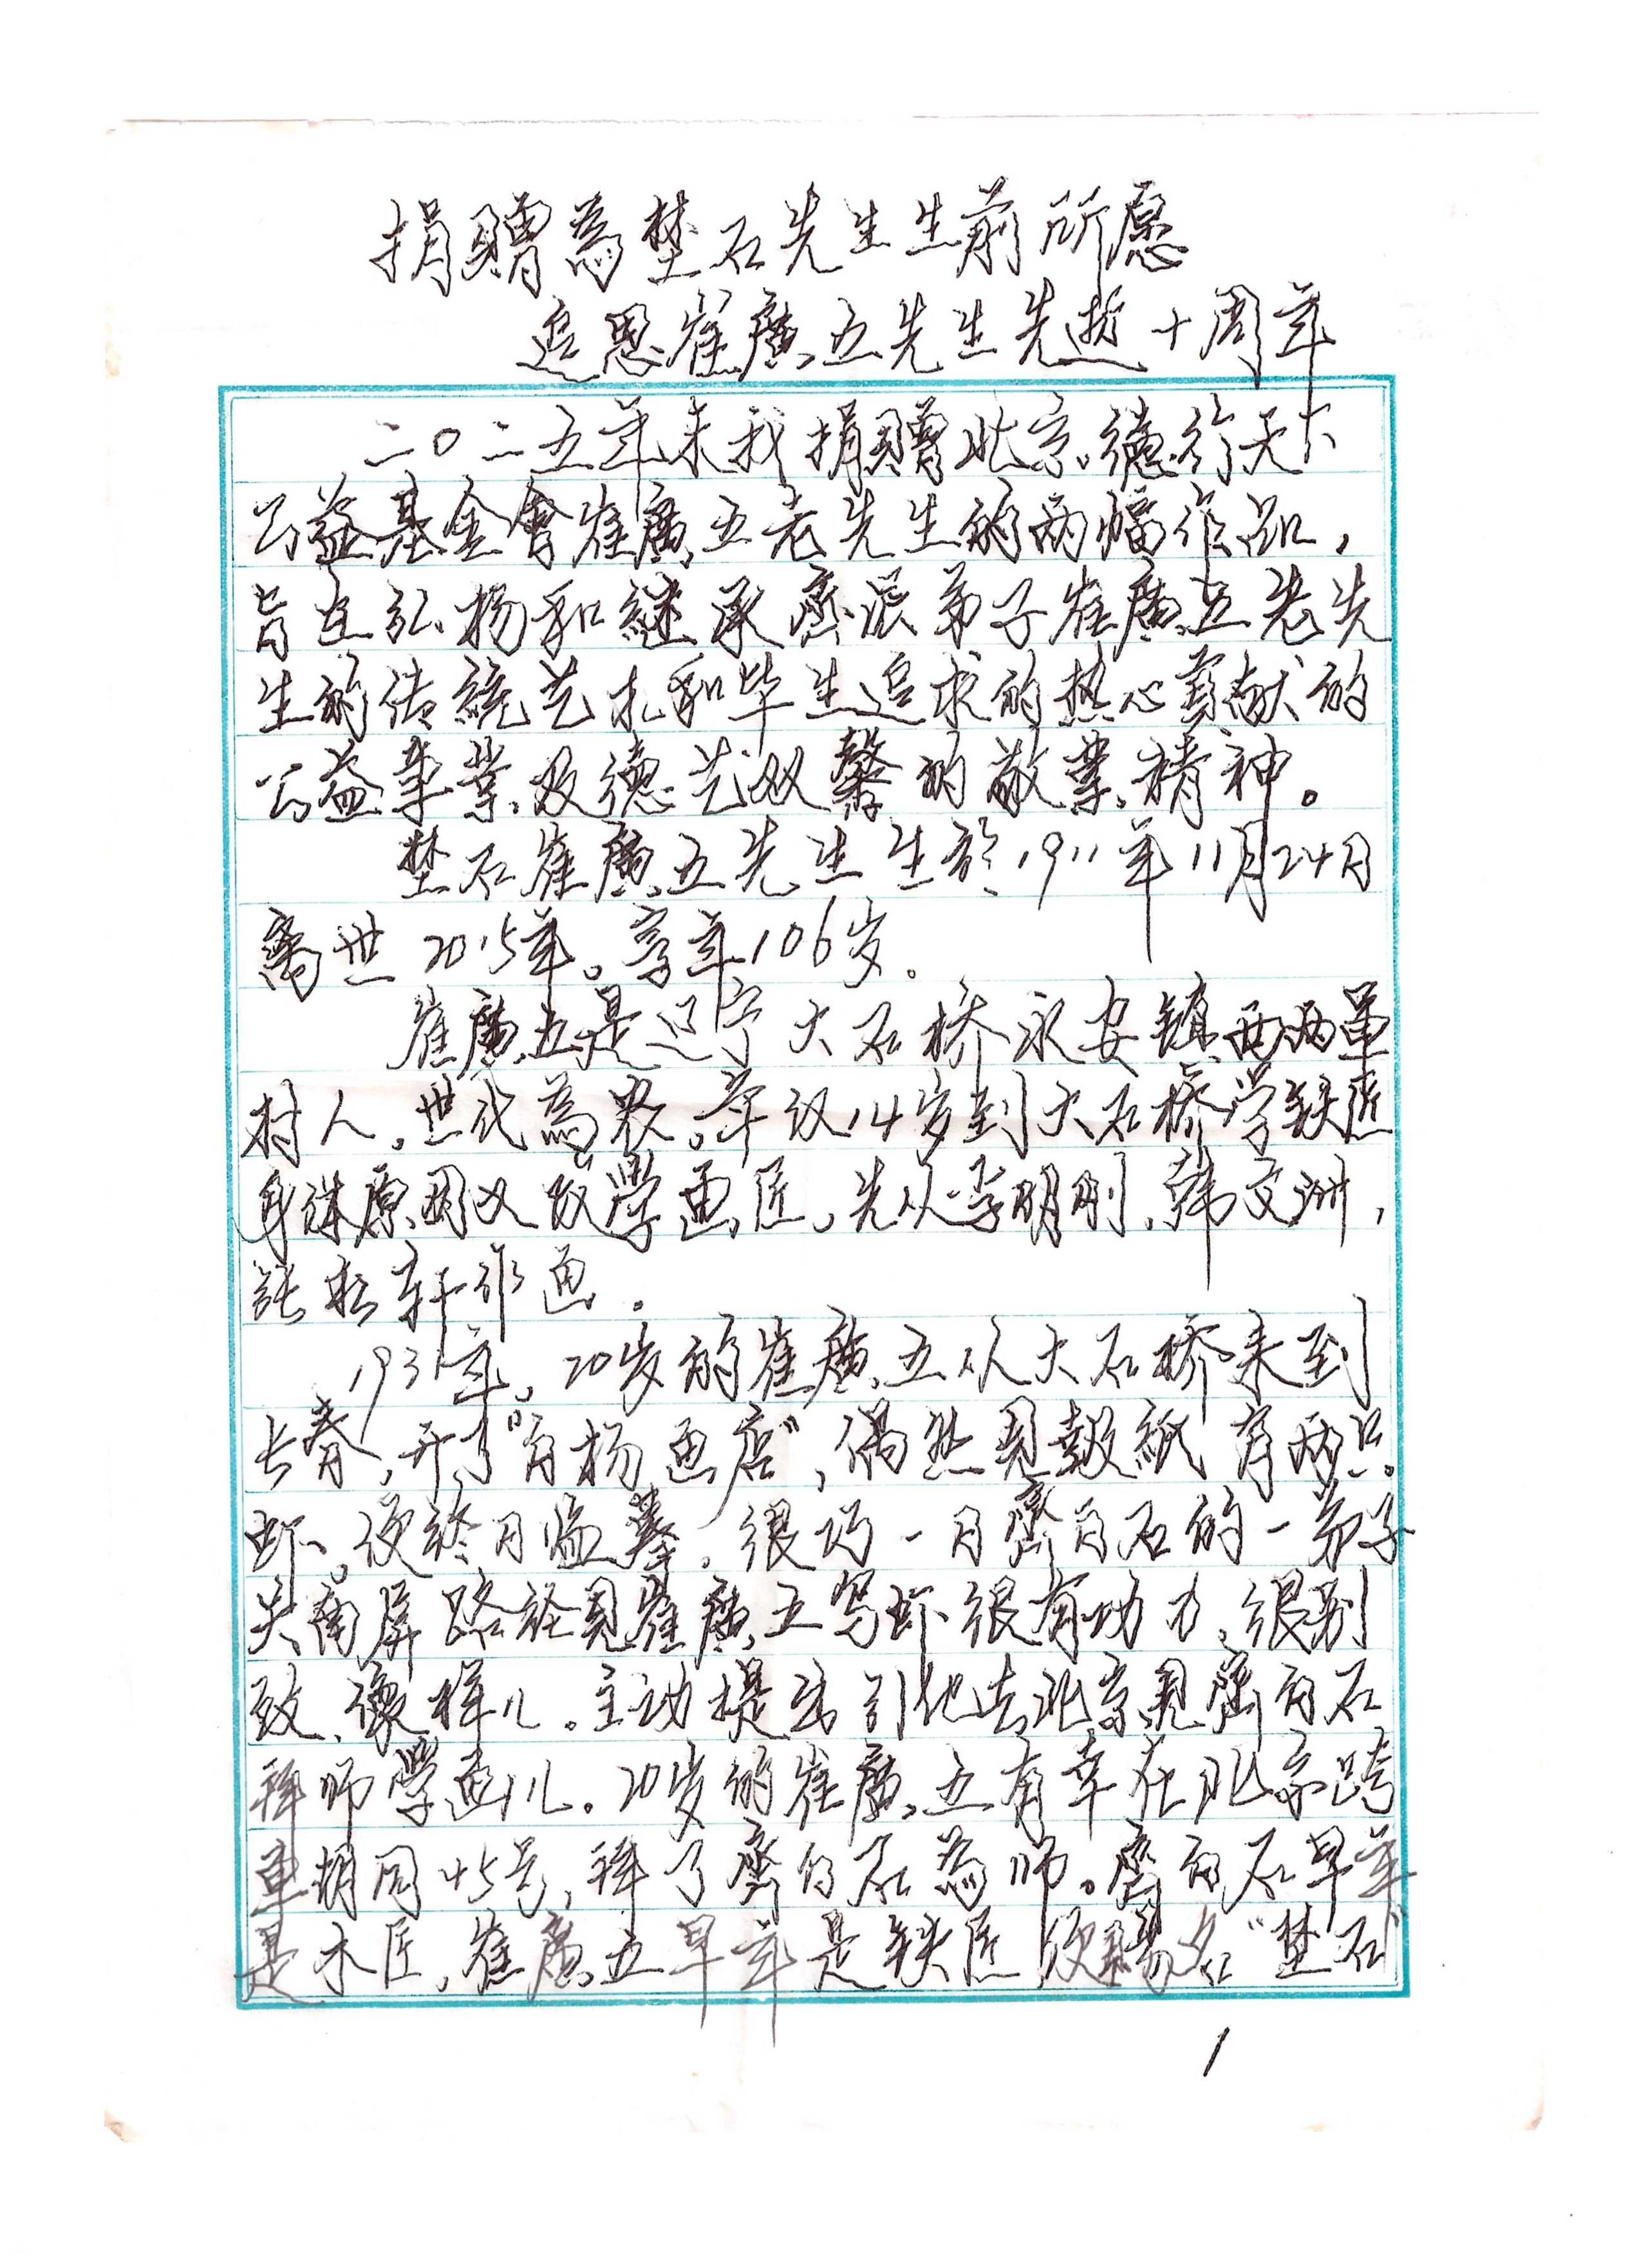 捐贈為埜石先生生前所愿
追思崔廣五先生先逝十周年
二〇二五年末我捐贈北京德行天下
公益基金會崔廣五老先生的两幅作品，
旨在弘揚和継承齊派弟子崔廣五老先
生的传統艺术和毕生追求的热心貢献的
公益事業、及德艺双馨的敬業精神。
埜石崔廣五先生生於1911年11月24日
离世2015年。享年106岁。
崔廣五是辽宁大石桥永安镇西两車
村人。世代為农。年仅14岁到大石桥学铁匠
身体原因又改學画匠，先从李明刚、韩文洲，
張松轩作画。
1931年，20岁的崔廣五从大石桥来到
长春，开了“白杨画店”，偶然見報紙有两只
虾、便终日临摹。很巧一日齊白石的一弟子
关南屏路经見崔廣五写虾很有功力、很别
致、像样儿。主动提出引他去北京見齊白石
拜师學画儿。20岁的崔廣五有幸在北京跨
車胡同45号，拜了齊白石為师。齊白石早年
是木匠，崔廣五早年是铁匠便賜名“埜石”
1